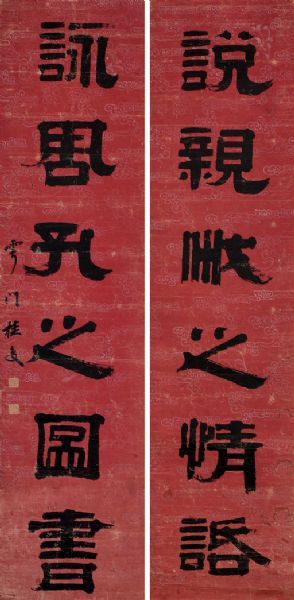 說親戚之情話
詠周孔之圖書
雩門桂馥